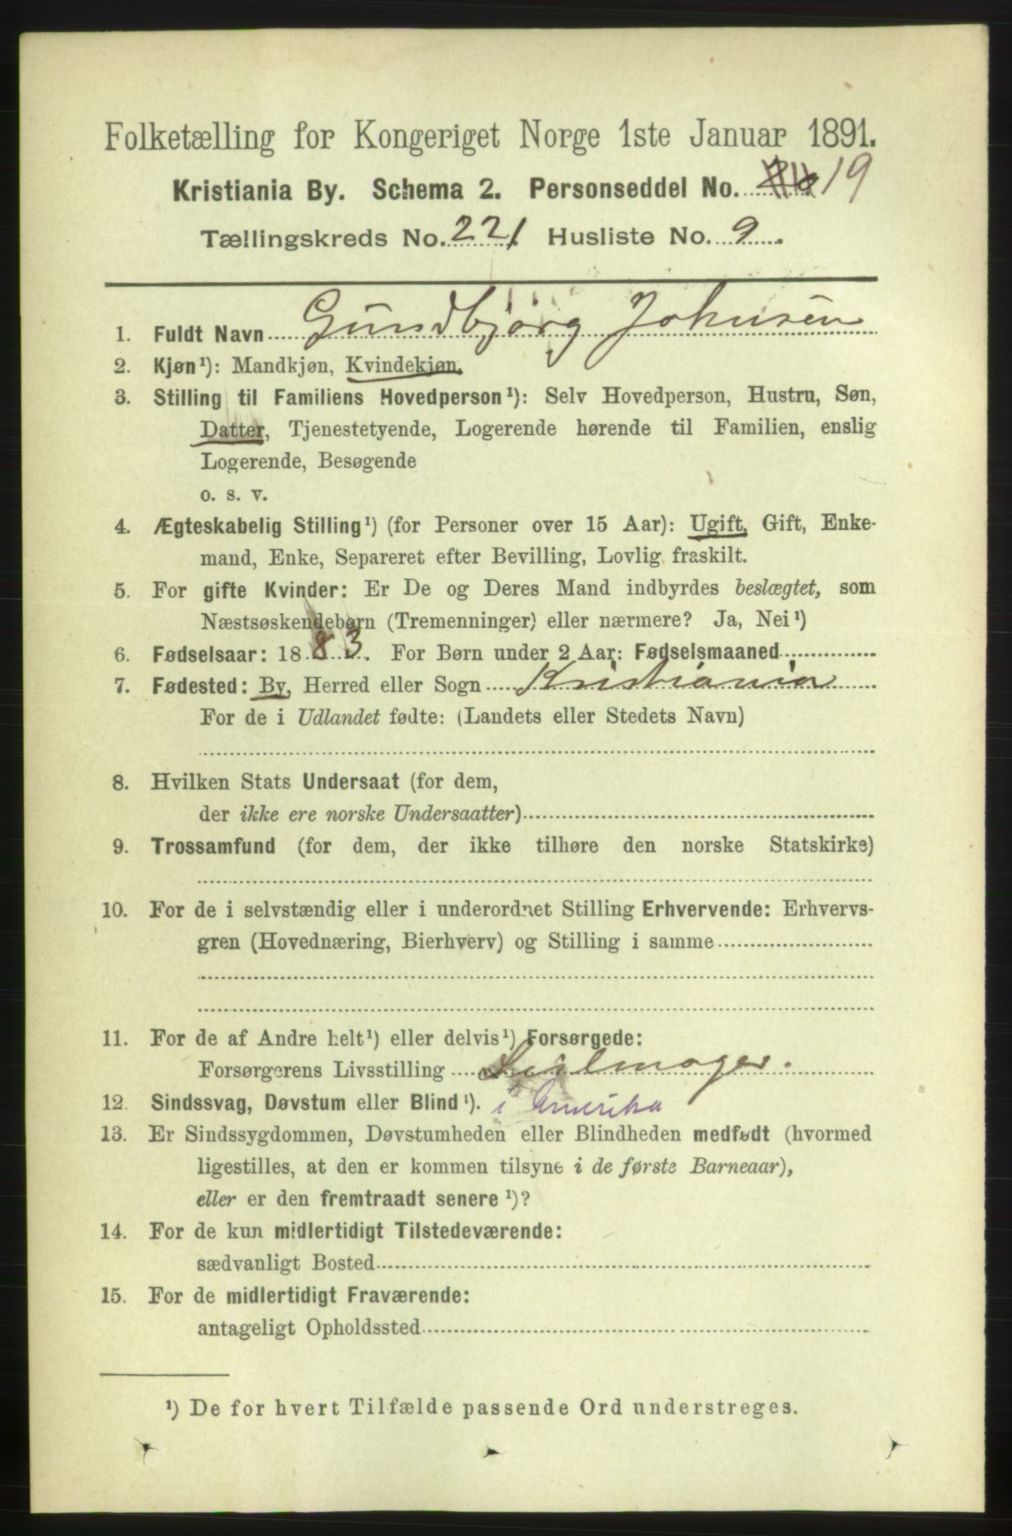 Folketælling for Kongeriget Norge 1ste Januar 1891.
Kristiania By. Schema 2. Personseddel No. 19
Tællingskreds No. 221 Husliste No. 9.
1. Fuldt Navn Gundbjørg Johnsen
2. Kjøn¹): Mandkjøn, Kvindekjøn.
3. Stilling til Familiens Hovedperson¹): Selv Hovedperson, Hustru, Søn,
Datter, Tjenestetyende, Logerende hørende til Familien, enslig
Logerende, Besøgende
o. s. v.
4. Ægteskabelig Stilling¹) (for Personer over 15 Aar): Ugift, Gift, Enke-
mand, Enke, Separeret efter Bevilling, Lovlig fraskilt.
5. For gifte Kvinder: Er De og Deres Mand indbyrdes beslægtet, som
Næstsøskendebørn (Tremenninger) eller nærmere? Ja, Nei¹)
6. Fødselsaar: 1883. For Børn under 2 Aar: Fødselsmaaned
7. Fødested: By, Herred eller Sogn Kristiania
For de i Udlandet fødte: (Landets eller Stedets Navn)
8. Hvilken Stats Undersaat (for dem,
der ikke ere norske Undersaatter)
9. Trossamfund (for dem, der ikke tilhøre den norske Statskirke)
10. For de i selvstændig eller i underordnet Stilling Erhvervende: Erhvervs-
gren (Hovednæring, Bierhverv) og Stilling i samme
11. For de af Andre helt¹) eller delvis¹) Forsørgede:
Forsørgerens Livsstilling Seilmager.
12. Sindssvag, Døvstum eller Blind¹). i Amerika
13. Er Sindssygdommen, Døvstumheden eller Blindheden medfødt (hvormed
ligestilles, at den er kommen tilsyne i de første Barneaar),
eller er den fremtraadt senere¹)?
14. For de kun midlertidigt Tilstedeværende:
sædvanligt Bosted
15. For de midlertidigt Fraværende:
antageligt Opholdssted
¹) De for hvert Tilfælde passende Ord understreges.